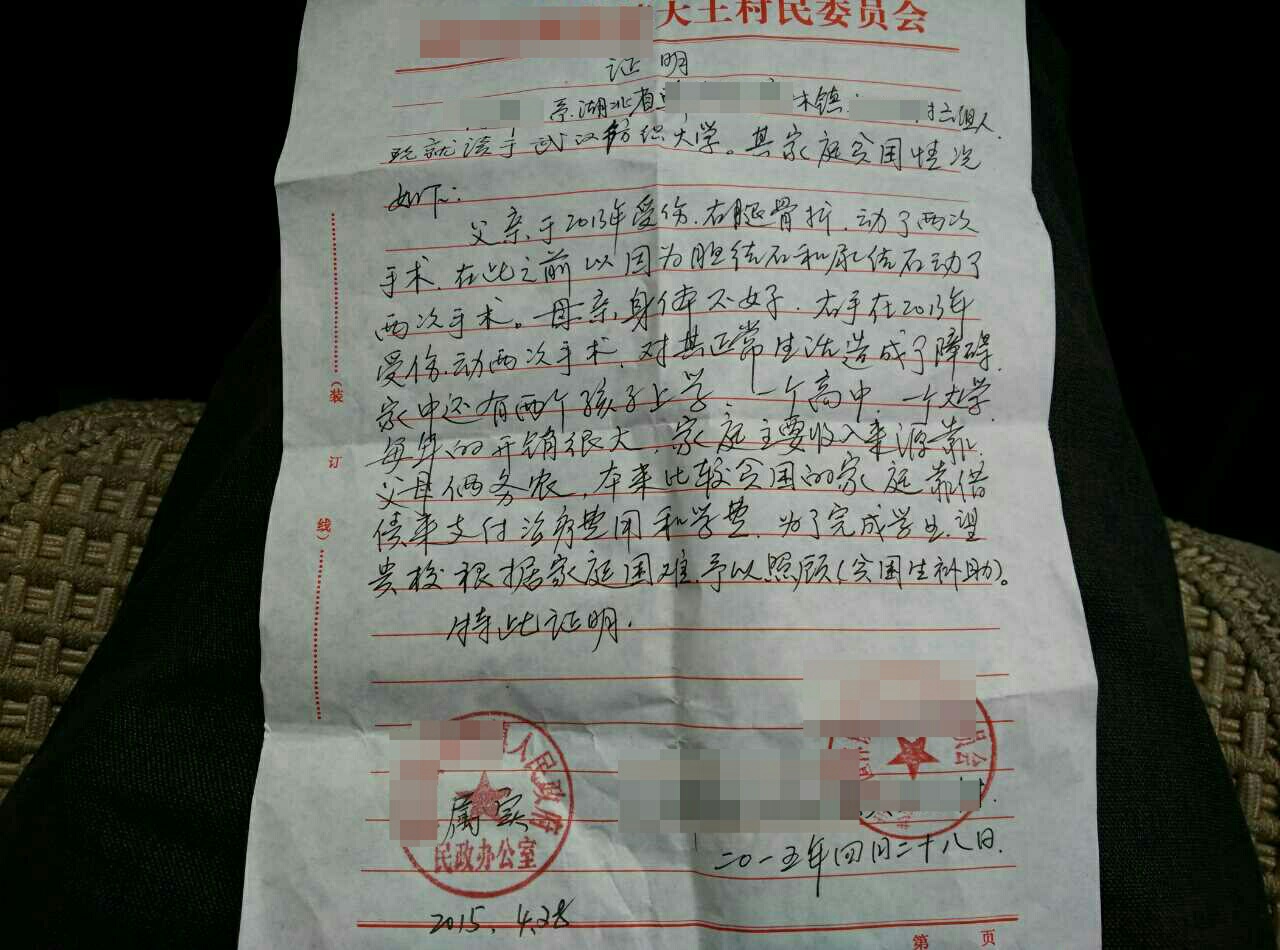 天王村民委员会
证明
系湖北省 木镇 村六组人
现就读于武汉纺织大学。其家庭贫困情况
如下:
父亲于2013年受伤.右腿骨折.动了两次
手术.在此之前以因为胆结石和尿结石动了
两次手术。母亲身体不好.右手在2013年
受伤.动两次手术.对其正常生活造成了障碍.
家中还有两个孩子上学、一个高中.一个大学.
每年的开销很大.家庭主要收入来源靠
父母俩务农,本来比较贫困的家庭靠借
债来支付治疗费用和学费.为了完成学业.望
贵校根据家庭困难.予以照顾(贫困生补助)。
特此证明.
(装订线)
人民政府
民政办公室
属实
员会
二〇一五年四月二十八日.
2015. 4.28
第 页